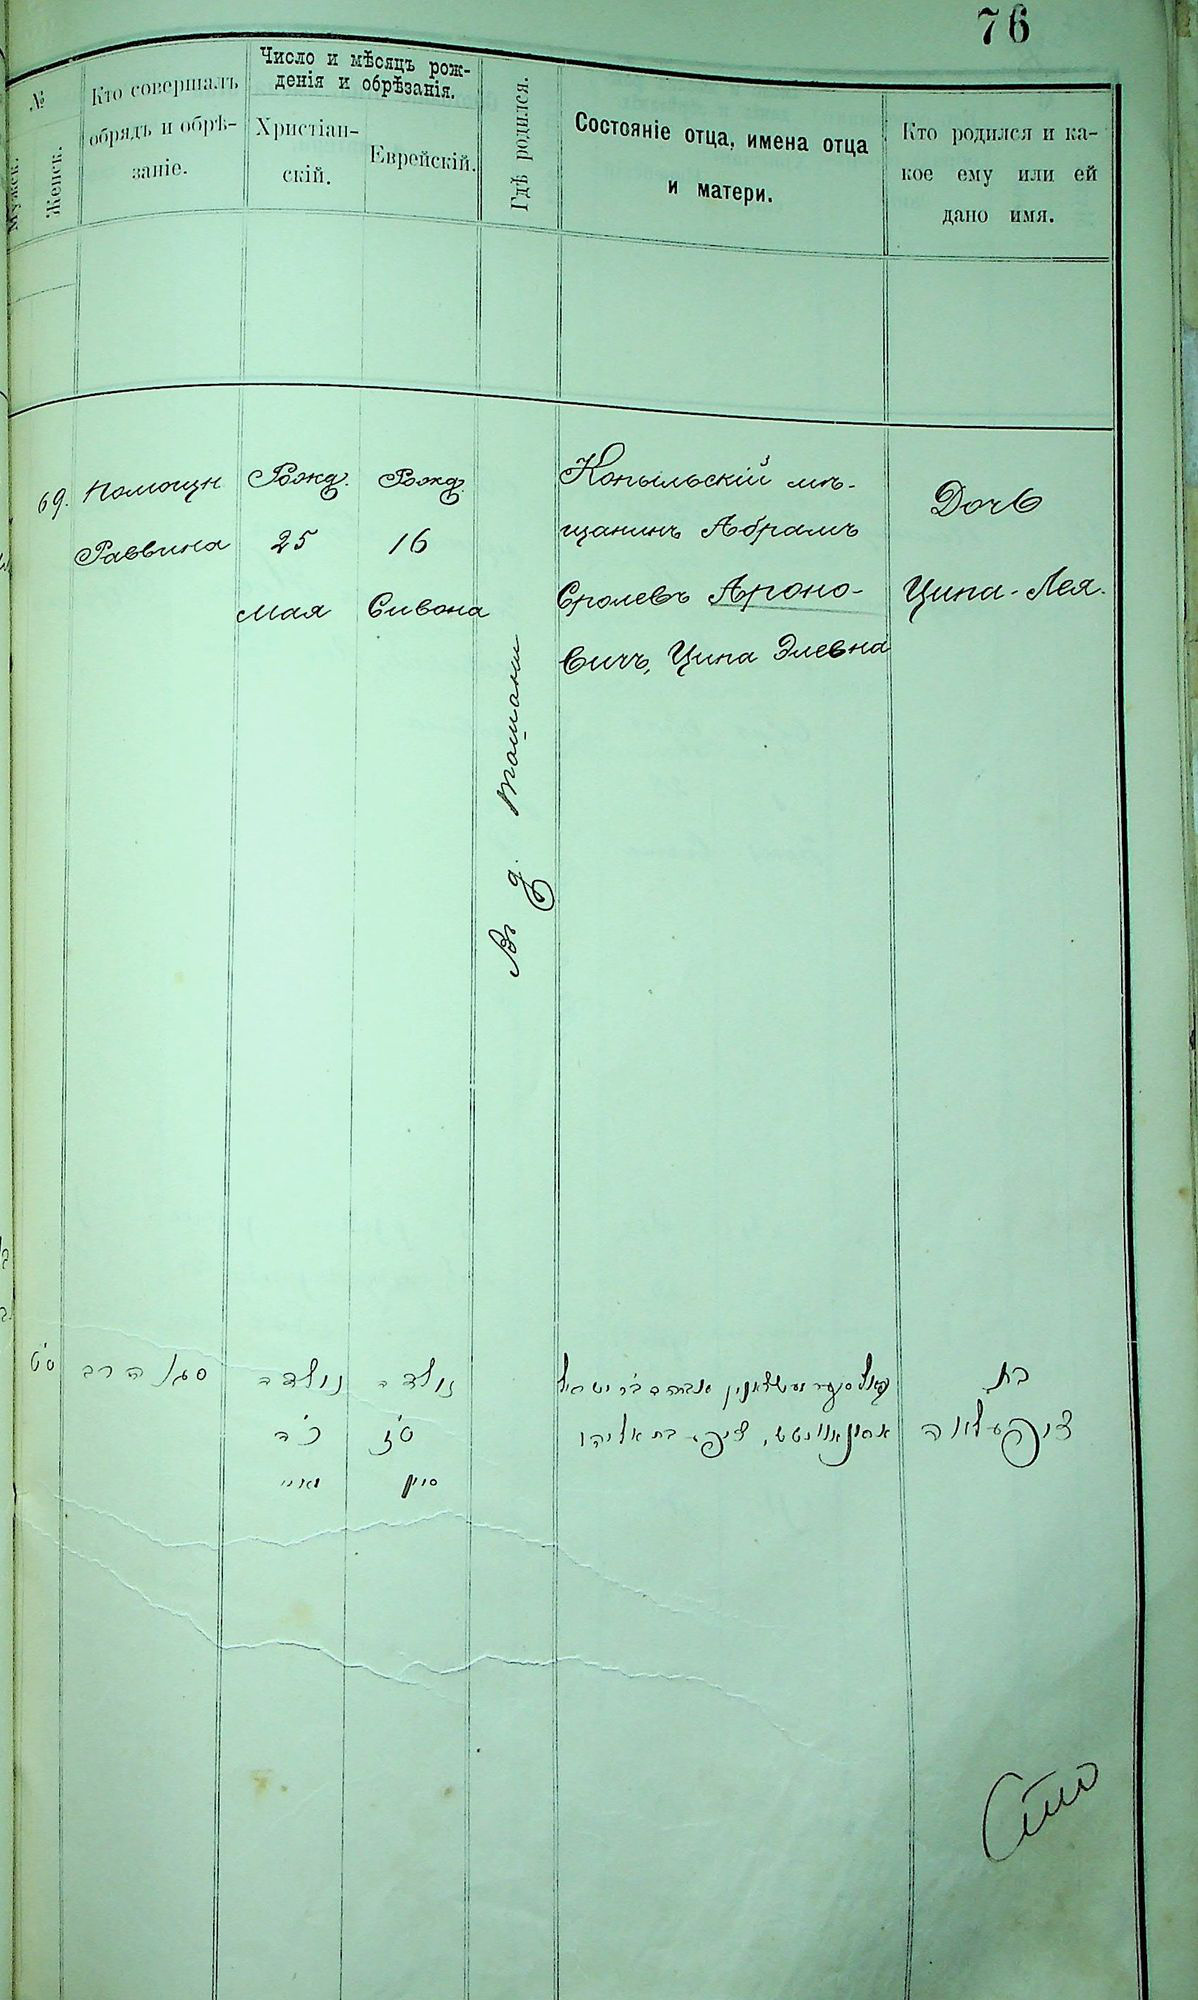 76
№
Мужск.
Женск.
Кто совершалъ
обрядъ и обрѣ-
заніе.
Число и мѣсяцъ рож-
денія и обрѣзанія.
Христіан-
скій.
Еврейскій.
Гдѣ родился.
Состояніе отца, имена отца
и матери.
Кто родился и ка-
кое ему или ей
дано имя.
69.
Помощн
Раввина
Рожд.
25
мая
Рожд.
16
Сивона
Въ д.
Копыльскій мѣ-
щанинъ Абрамъ
Сролевъ Ароно-
вичъ, Ципа Элевна
Дочь
Ципа-Лея.
ס׳ט
סגן הרב
נולדה
כ׳ה
מאיי
נולדה
ט׳ז
סיון
אברהם ב׳ר ישראל
ציפע בת אליהו
בת
ציפע לאה